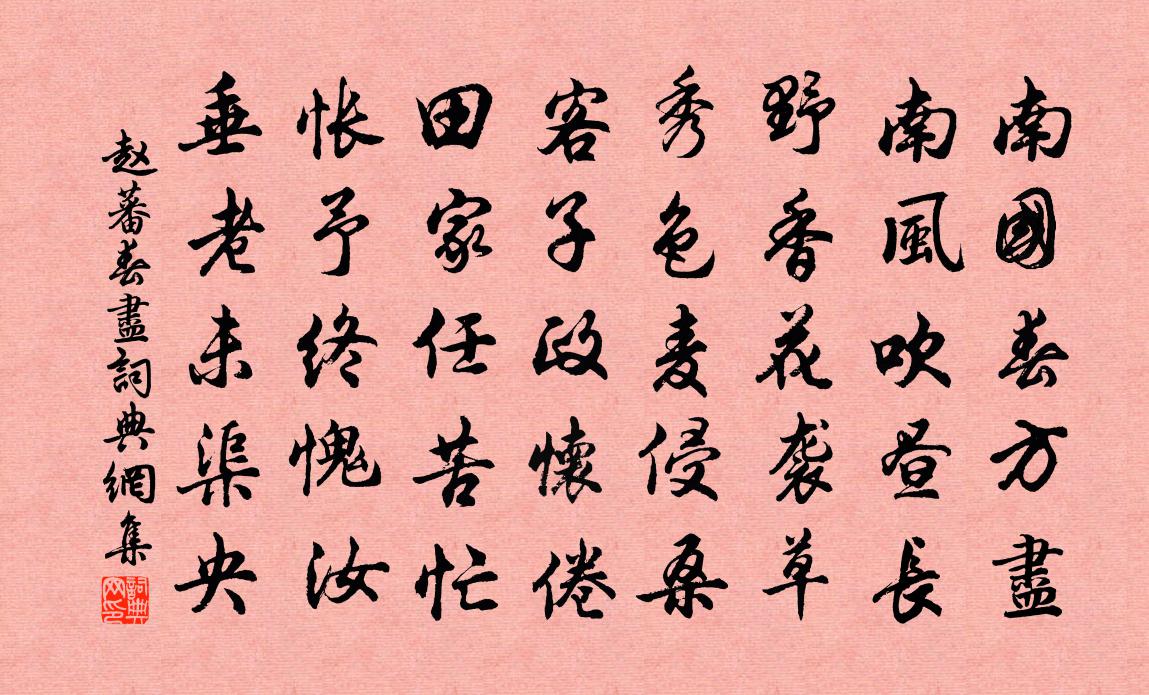 南國春方盡
南風吹昼長
野香花袭草
秀色麦侵桑
客子政懷倦
田家任苦忙
怅予终愧汝
垂老未渠央
赵蕃春盡詞典網集
詞典網印